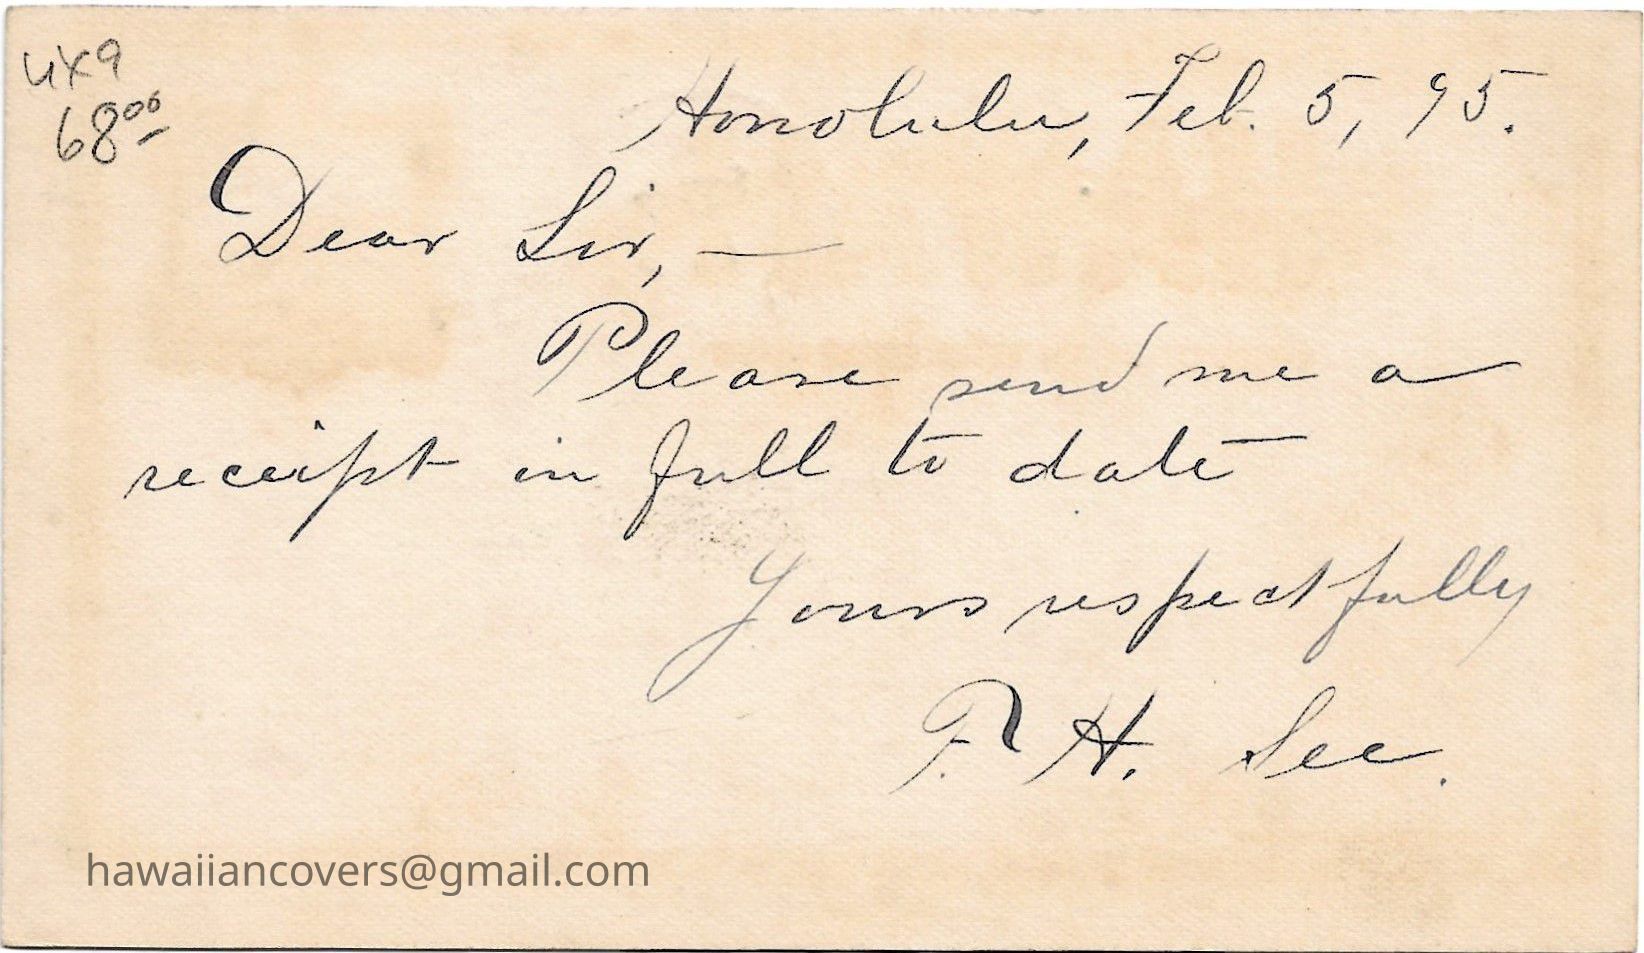 UX9
68.00
Honolulu, Feb. 5, 95.
Dear Sir, —
Please send me a
receipt in full to date
Yours respectfully
F. H. See.
hawaiiancovers@gmail.com